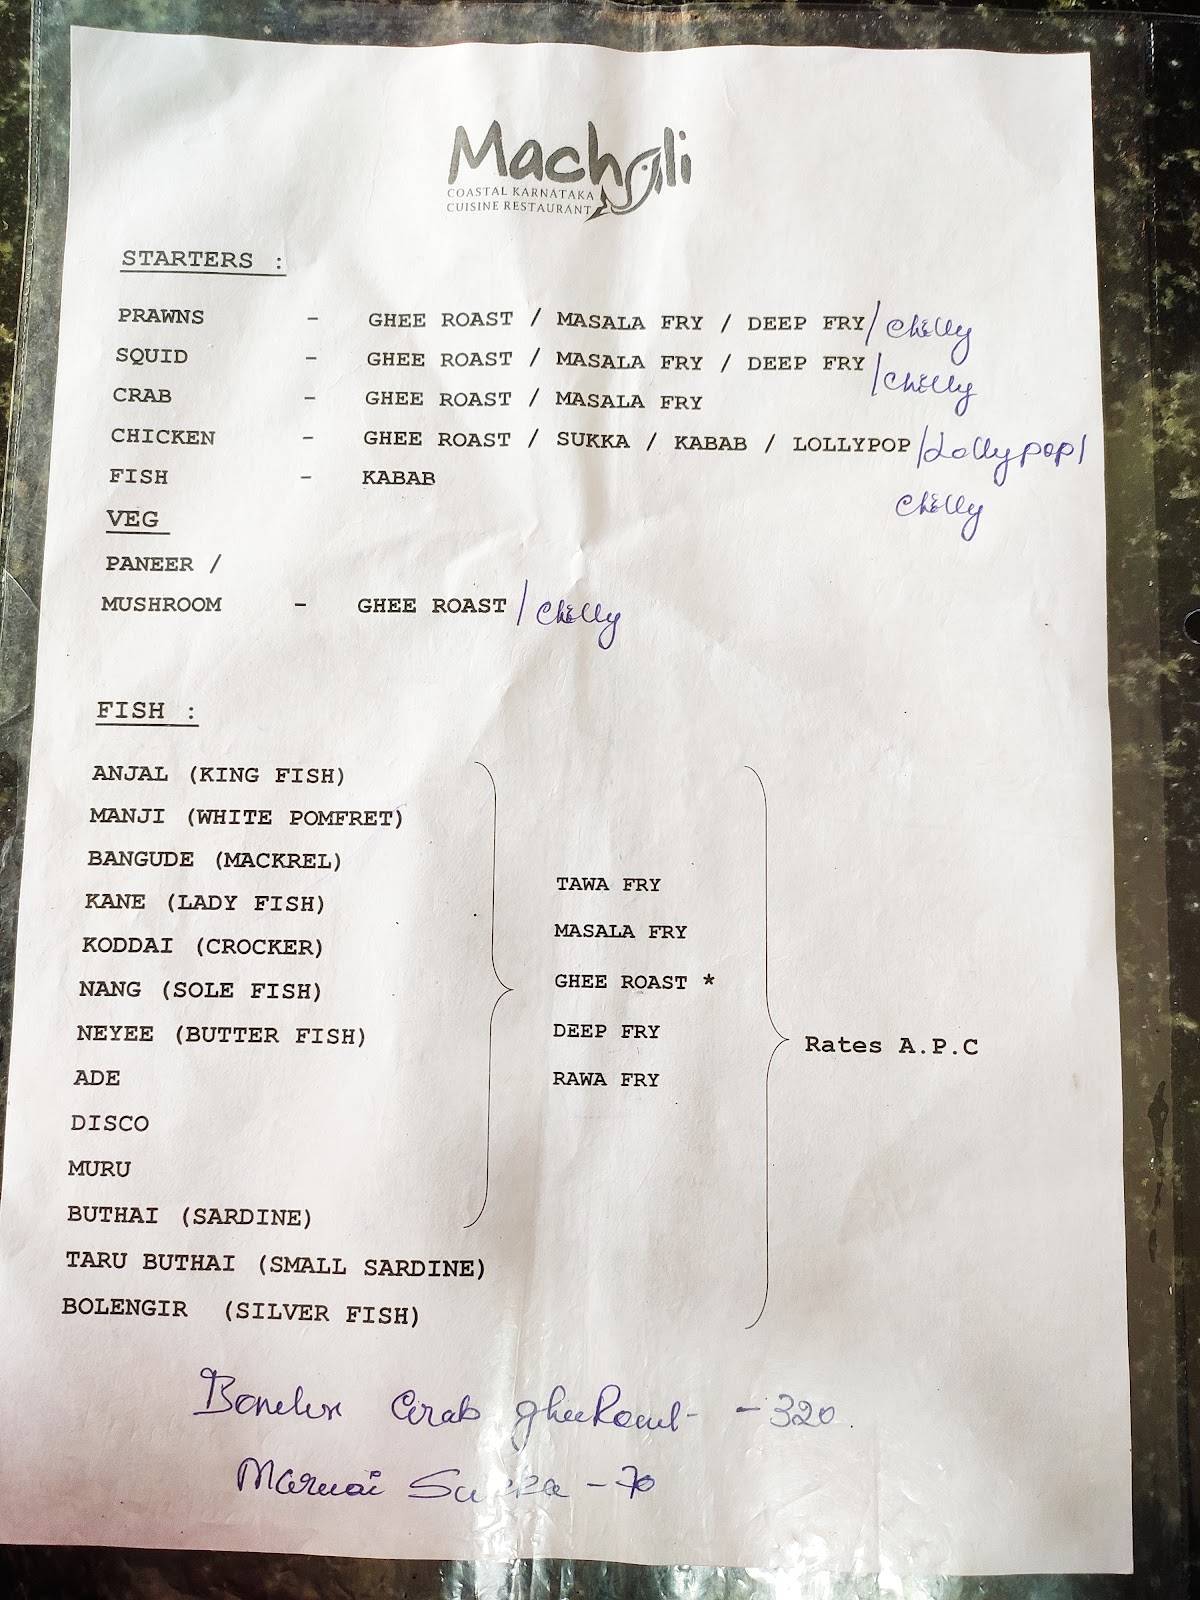 Machali
COASTAL KARNATAKA
CUISINE RESTAURANT
STARTERS :
PRAWNS - GHEE ROAST / MASALA FRY / DEEP FRY / Chilly
SQUID - GHEE ROAST / MASALA FRY / DEEP FRY / Chilly
CRAB - GHEE ROAST / MASALA FRY
CHICKEN - GHEE ROAST / SUKKA / KABAB / LOLLYPOP / Lollypop /
Chilly
FISH - KABAB
VEG
PANEER /
MUSHROOM - GHEE ROAST / Chilly
FISH :
ANJAL (KING FISH)
MANJI (WHITE POMFRET)
BANGUDE (MACKREL)
KANE (LADY FISH)
KODDAI (CROCKER)
NANG (SOLE FISH)
NEYEE (BUTTER FISH)
ADE
DISCO
MURU
BUTHAI (SARDINE)
TARU BUTHAI (SMALL SARDINE)
BOLENGIR (SILVER FISH)
TAWA FRY
MASALA FRY
GHEE ROAST *
DEEP FRY
RAWA FRY
Rates A.P.C
Crab ghee Roast - 320
Marwai Sukka - 70